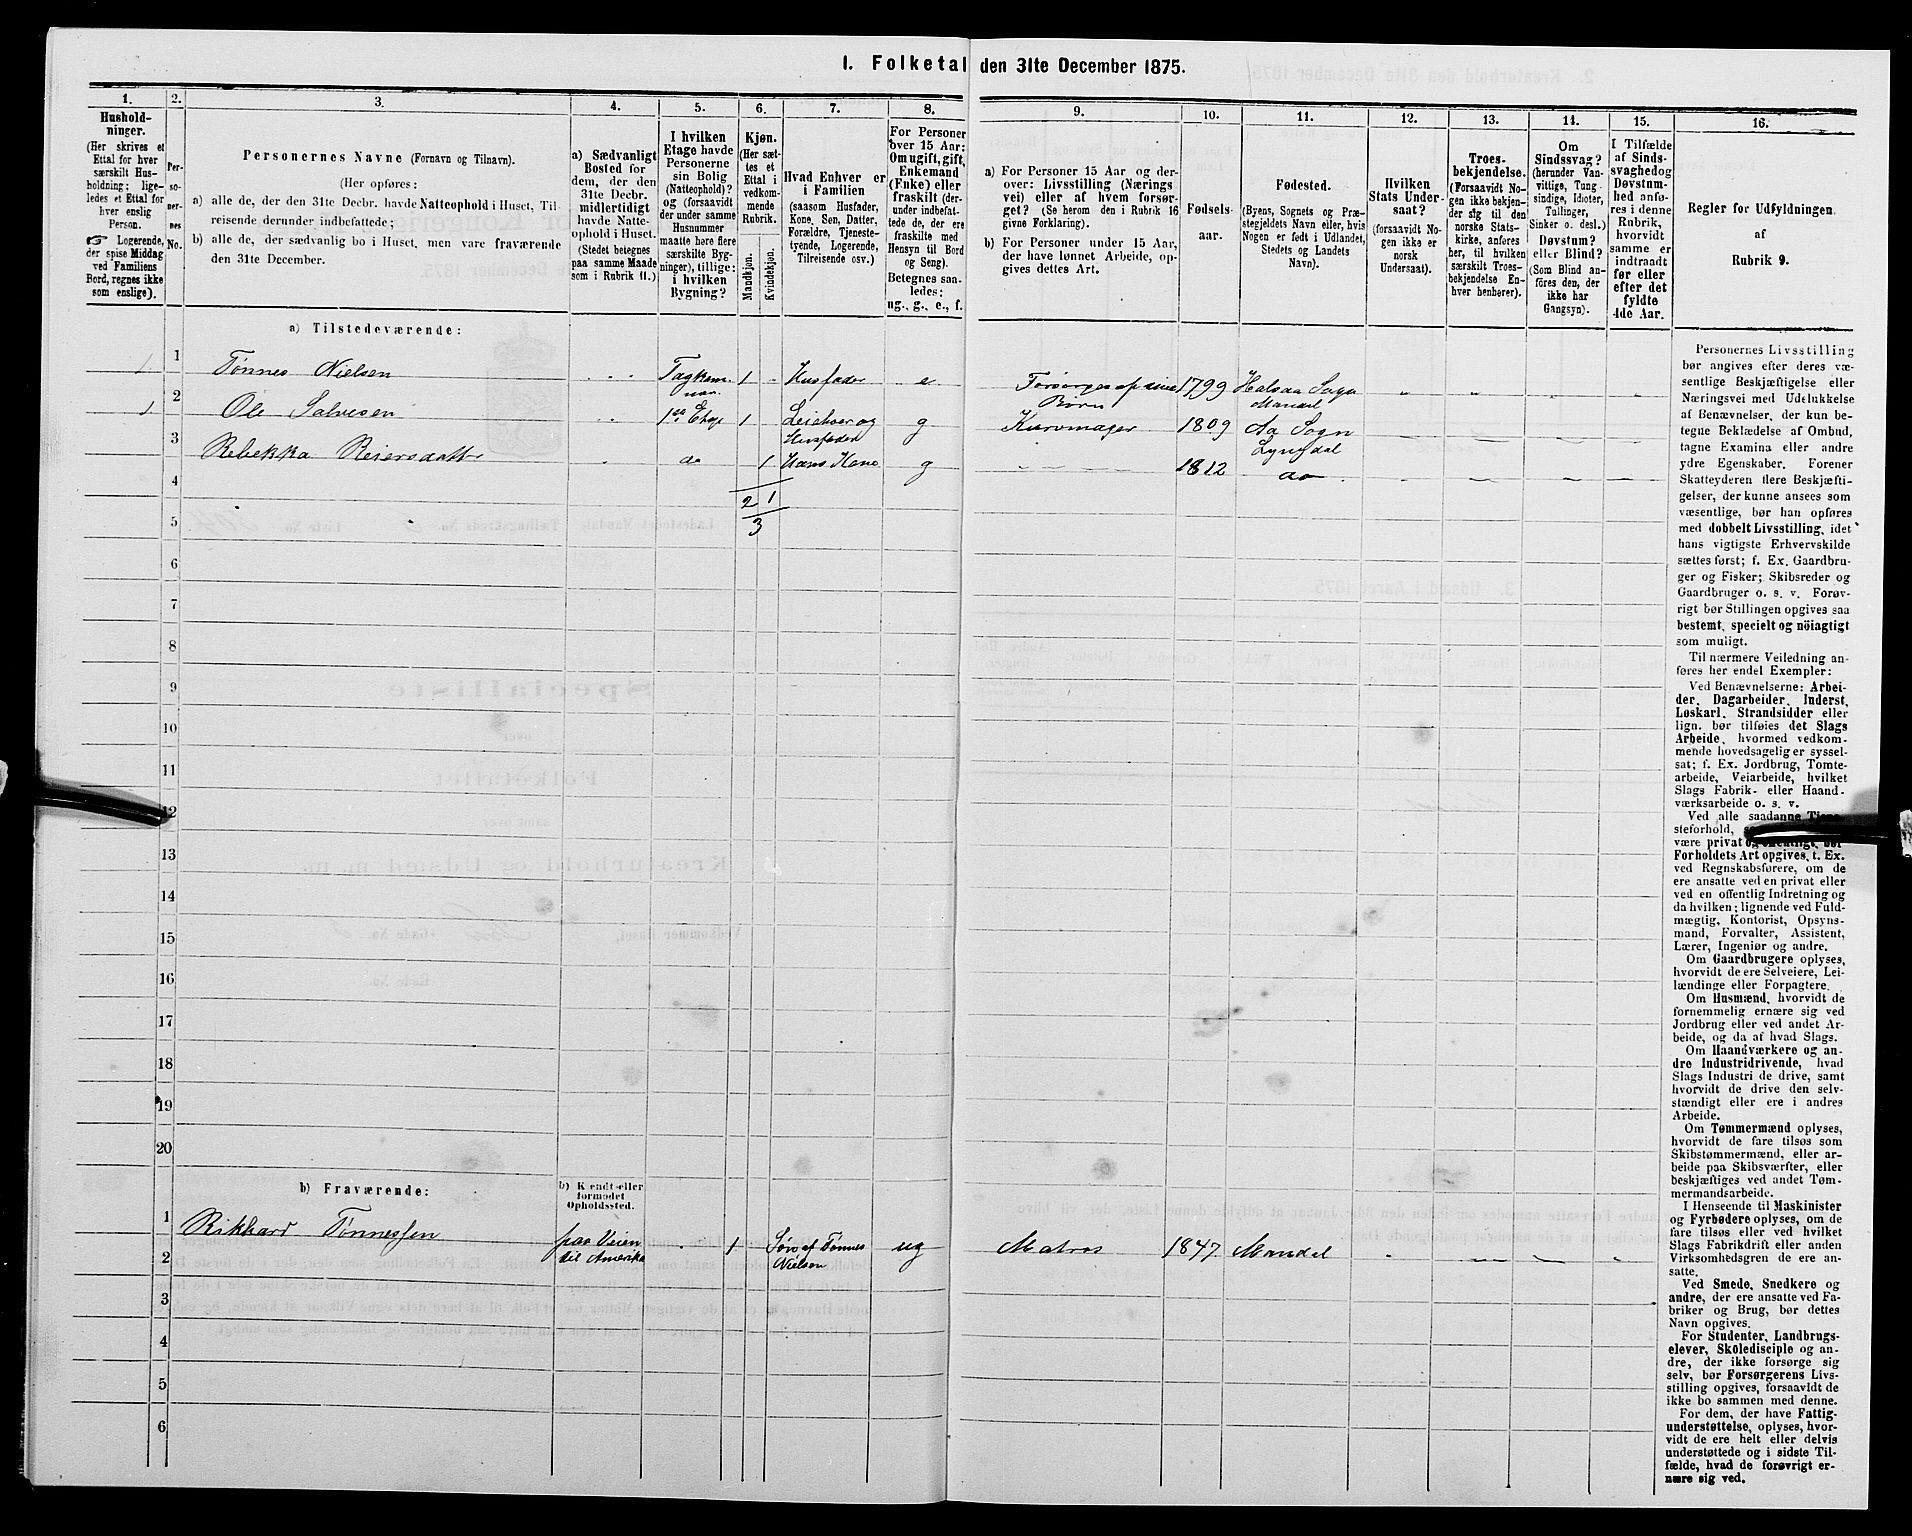 1. Folketal den 31te December 1875.
1.
Hushold-
ninger.
(Her skrives et
Ettal for hver
særskilt Hus-
holdning; lige-
ledes et Ettal for
hver enslig
Person.
☞ Logerende,
der spise Middag
ved Familiens
Bord, regnes ikke
som enslige).
2.
Per-
so-
ner-
nes
No.
3.
Personernes Navne (Fornavn og Tilnavn).
(Her opføres:
a) alle de, der den 31te Decbr. havde Natteophold i Huset, Til-
reisende derunder indbefattede;
b) alle de, der sædvanlig bo i Huset, men vare fraværende
den 31te December.
4.
a) Sædvanligt
Bosted for
dem, der den
31te Decbr.
midlertidigt
havde Natte-
ophold i Huset.
(Stedet betegnes
paa samme Maade
som i Rubrik 11.)
5.
I hvilken
Etage havde
Personerne
sin Bolig
(Natteophold)?
og (forsaavidt
der under samme
Husnummer
maatte høre flere
særskilte Byg-
ninger), tillige:
i hvilken
Bygning?
6.
Kjøn.
(Her sæt-
tes et
Ettal i
vedkom-
mende
Rubrik.
Mandkjøn.
Kvindekjøn.
7.
Hvad Enhver er
i Familien
(saasom Husfader,
Kone, Søn, Datter,
Forældre, Tjeneste-
tyende, Logerende,
Tilreisende osv.)
8.
For Personer
over 15 Aar:
Om ugift, gift,
Enkemand
(Enke) eller
fraskilt (der-
under indbefat-
tede de, der ere
fraskilte med
Hensyn til Bord
og Seng).
Betegnes saa-
ledes:
ug., g., e., f.
9.
a) For Personer 15 Aar og der-
over: Livsstilling (Nærings
vei) eller af hvem forsør-
get? (Se herom den i Rubrik 16
givne Forklaring).
b) For Personer under 15 Aar,
der have lønnet Arbeide, op-
gives dettes Art.
10.
Fødsels-
aar.
11.
Fødested.
(Byens, Sognets og Præ-
stegjeldets Navn eller, hvis
Nogen er født i Udlandet,
Stedets og Landets
Navn).
12.
Hvilken
Stats Under-
saat?
(forsaavidt No-
gen ikke er
norsk
Undersaat).
13.
Troes-
bekjendelse.
(Forsaavidt No-
gen ikke bekjen-
der sig til den
norske Stats-
kirke, anføres
her, til hvilken
særskilt Troes-
bekjendelse En-
hver henhører).
14.
Om
Sindssvag?
(herunder Van-
vittige, Tung-
sindige, Idioter,
Tullinger,
Sinker o. desl.)
Døvstum?
eller Blind?
(Som Blind an-
føres den, der
ikke har
Gangsyn).
15.
I Tilfælde
af Sinds-
svaghedog
Døvstum-
hed anfø-
res i denne
Rubrik,
hvorvidt
samme er
indtraadt
før eller
efter det
fyldte
4de Aar.
16.
Regler for Udfyldningen.
af
Rubrik 9.
a) Tilstedeværende:
1 1 Tønnes Nielsen Tagkam- 1 Husfader e Forsørges af sine 1799 Halsaa Sogn
mer Børn Mandal
1 2 Ole Salvesen 1ste Etage 1 Leietver og g Kurvmager 1809 Aa Sogn
Husfader Lyngdal
3 Rebekka Reiersdatter do 1 Hans Kone g 1812 do
4
2 1
5
3
6
7
8
9
10
11
12
13
14
15
16
17
18
19
20
b) Fraværende:
b) Kjendt eller
formodet
Opholdssted.
1 Rikhard Tønnessen paa Veien 1 Søn af Tønnes ug Matros 1847 Mandal
2 til Amerika Nielsen
3
4
5
6
Personernes Livsstilling
bør angives efter deres væ-
sentlige Beskjæftigelse eller
Næringsvei med Udelukkelse
af Benævnelser, der kun be-
tegne Beklædelse af Ombud,
tagne Examina eller andre
ydre Egenskaber. Forener
Skatteyderen flere Beskjæfti-
gelser, der kunne ansees som
væsentlige, bør han opføres
med dobbelt Livsstilling, idet
hans vigtigste Erhvervskilde
sættes først; f. Ex. Gaardbru-
ger og Fisker; Skibsreder og
Gaardbruger o. s. v. Forøv-
rigt bør Stillingen opgives saa
bestemt, specielt og nöiagtigt
som muligt.
Til nærmere Veiledning an-
føres her endel Exempler:
Ved Benævnelserne: Arbei-
der, Dagarbeider, Inderst,
Løskarl, Strandsidder eller
lign. bør tilføies det Slags
Arbeide, hvormed vedkom-
mende hovedsagelig er syssel-
sat; f. Ex. Jordbrug, Tomte-
arbeide, Veiarbeide, hvilket
Slags Fabrik- eller Haand-
værksarbeide o. s. v.
Ved alle saadanne Tjene-
steforhold,
være privat og offentligt, bør
Forholdets Art opgives, t. Ex.
ved Regnskabsførere, om de
ere ansatte ved en privat eller
ved en offentlig Indretning og
da hvilken; lignende ved Fuld-
mægtig, Kontorist, Opsyns-
mand, Forvalter, Assistent,
Lærer, Ingeniør og andre.
Om Gaardbrugere oplyses,
hvorvidt de ere Selveiere, Lei-
lændinge eller Forpagtere.
Om Husmænd, hvorvidt de
fornemmelig ernære sig ved
Jordbrug eller ved andet Ar-
beide, og da af hvad Slags.
Om Haandværkere og an-
dre Industridrivende, hvad
Slags Industri de drive, samt
hvorvidt de drive den selv-
stændigt eller ere i andres
Arbeide.
Om Tømmermænd oplyses,
hvorvidt de fare tilsøs som
Skibstømmermænd, eller ar-
beide paa Skibsværfter, eller
beskjæftiges ved andet Tøm-
mermandsarbeide.
I Henseende til Maskinister
og Fyrbødere oplyses, om de
fare tilsøs eller ved hvilket
Slags Fabrikdrift eller anden
Virksomhedsgren de ere an-
satte.
Ved Smede, Snedkere og
andre, der ere ansatte ved Fa-
briker og Brug, bør dettes
Navn opgives.
For Studenter, Landbrugs-
elever, Skoledisciple og an-
dre, der ikke forsørge sig
selv, bør Forsørgerens Livs-
stilling opgives, forsaavidt de
ikke bo sammen med denne.
For dem, der have Fattig-
understøttelse, oplyses, hvor-
vidt de ere helt eller delvis
understøttede og i sidste Til-
fælde, hvad de forøvrigt er-
nære sig ved.